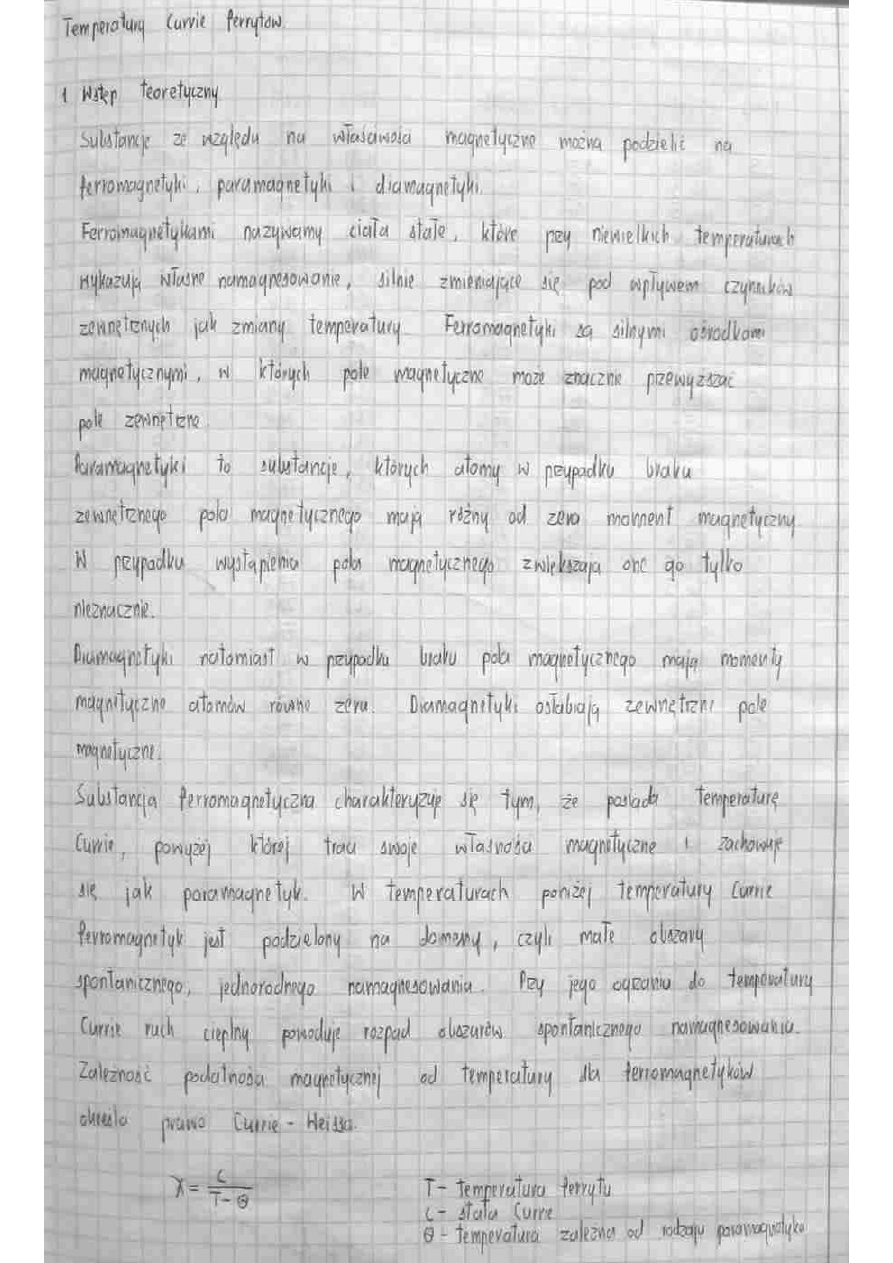 Temperatury Currie ferrytów
1 Wstęp teoretyczny
Substancje ze względu na własciwości magnetyczne można podzielić na
ferromagnetyki, paramagnetyki i diamagnetyki.
Ferromagnetykami nazywamy ciała stałe, które przy niewielkich temperaturach
wykazują własne namagnesowanie, silnie zmieniające się pod wpływem czynników
zewnętrznych jak zmiany temperatury. Ferromagnetyki są silnymi ośrodkami
magnetycznymi, w których pole magnetyczne może znacznie przewyższać
pole zewnętrzne.
Paramagnetyki to substancje, których atomy w przypadku braku
zewnętrznego pola magnetycznego mają różny od zera moment magnetyczny
W przypadku wystąpienia pola magnetycznego zwiększają one go tylko
nieznacznie.
Diamagnetyki natomiast w przypadku braku pola magnetycznego mają momenty
magnetyczne atomów równe zeru. Diamagnetyki osłabiają zewnętrzne pole
magnetyczne.
Substancja ferromagnetyczna charakteryzuje się tym, że posiada temperaturę
Currie, powyżej której traci swoje własności magnetyczne i zachowuje
się jak paramagnetyk. W temperaturach poniżej temperatury Currie
ferromagnetyk jest podzielony na domeny, czyli małe obszary
spontanicznego, jednorodnego namagnesowania. Przy jego ogrzaniu do temperatury
Currie ruch cieplny powoduje rozpad obszarów spontanicznego namagnesowania.
Zależność podatności magnetycznej od temperatury dla ferromagnetyków
określa prawo Currie - Weissa.
χ = C / (T - Θ) T - temperatura ferrytu
C - stała Currie
Θ - temperatura zależna od rodzaju paramagnetyka